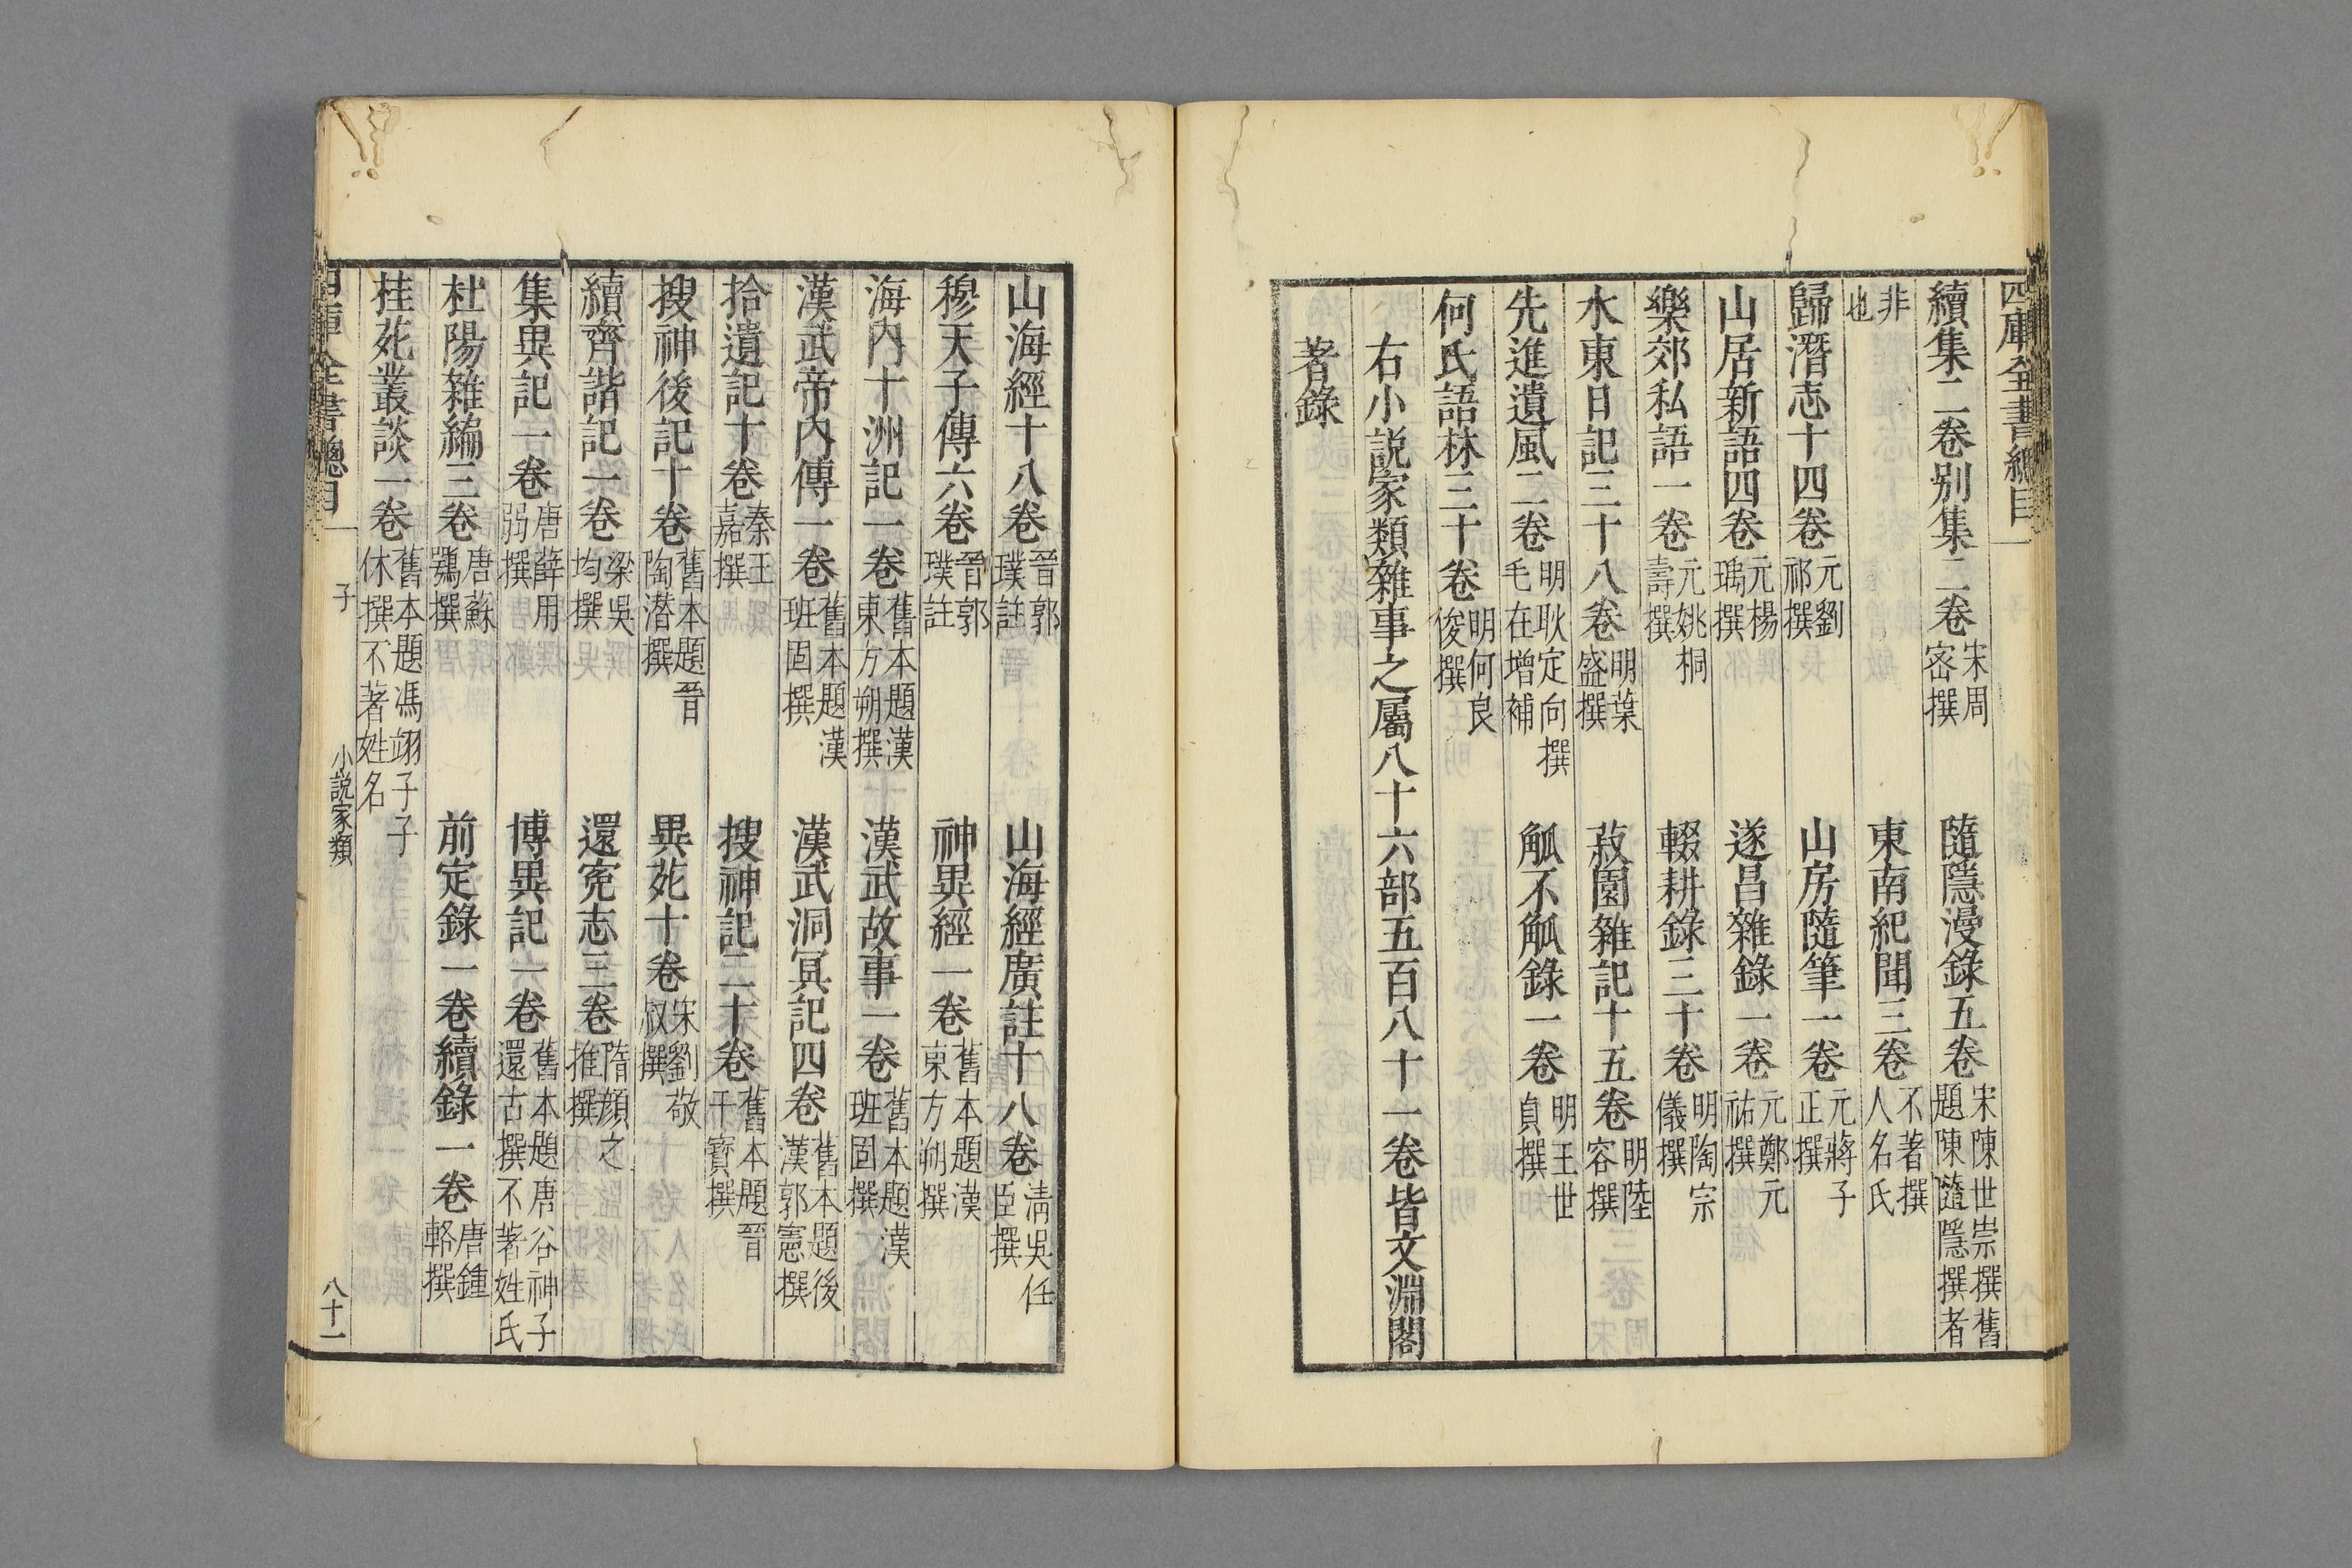 四庫全書總目
續集二卷别集二卷宋周密撰　隨隱漫錄五卷宋陳世崇撰舊題陳隨隱撰者
非也　東南紀聞三卷不著撰人名氏
歸潛志十四卷元劉祁撰　山房隨筆一卷元蔣子正撰
山居新語四卷元楊瑀撰　遂昌雜錄一卷元鄭元祐撰
樂郊私語一卷元姚桐壽撰　輟耕錄三十卷明陶宗儀撰
水東日記三十八卷明葉盛撰　菽園雜記十五卷明陸容撰
先進遺風二卷明耿定向撰毛在增補　觚不觚錄一卷明王世貞撰
何氏語林三十卷明何良俊撰
右小説家類雜事之屬八十六部五百八十一卷皆文淵閣
著錄
山海經十八卷晉郭璞註　山海經廣註十八卷淸吳任臣撰
穆天子傳六卷晉郭璞註　神異經一卷舊本題漢東方朔撰
海內十洲記一卷舊本題漢東方朔撰　漢武故事一卷舊本題漢班固撰
漢武帝內傳一卷舊本題漢班固撰　漢武洞冥記四卷舊本題後漢郭憲撰
拾遺記十卷秦王嘉撰　搜神記二十卷舊本題晉干寶撰
搜神後記十卷舊本題晉陶潛撰　異苑十卷宋劉敬叔撰
續齊諧記一卷梁吳均撰　還寃志三卷隋顏之推撰
集異記一卷唐薛用弱撰　博異記一卷舊本題唐谷神子還古撰不著姓氏
杜陽雜編三卷唐蘇鶚撰　前定錄一卷續錄一卷唐鍾輅撰
桂苑叢談一卷舊本題馮翊子子休撰不著姓名
四庫全書總目　子　小説家類　八十一